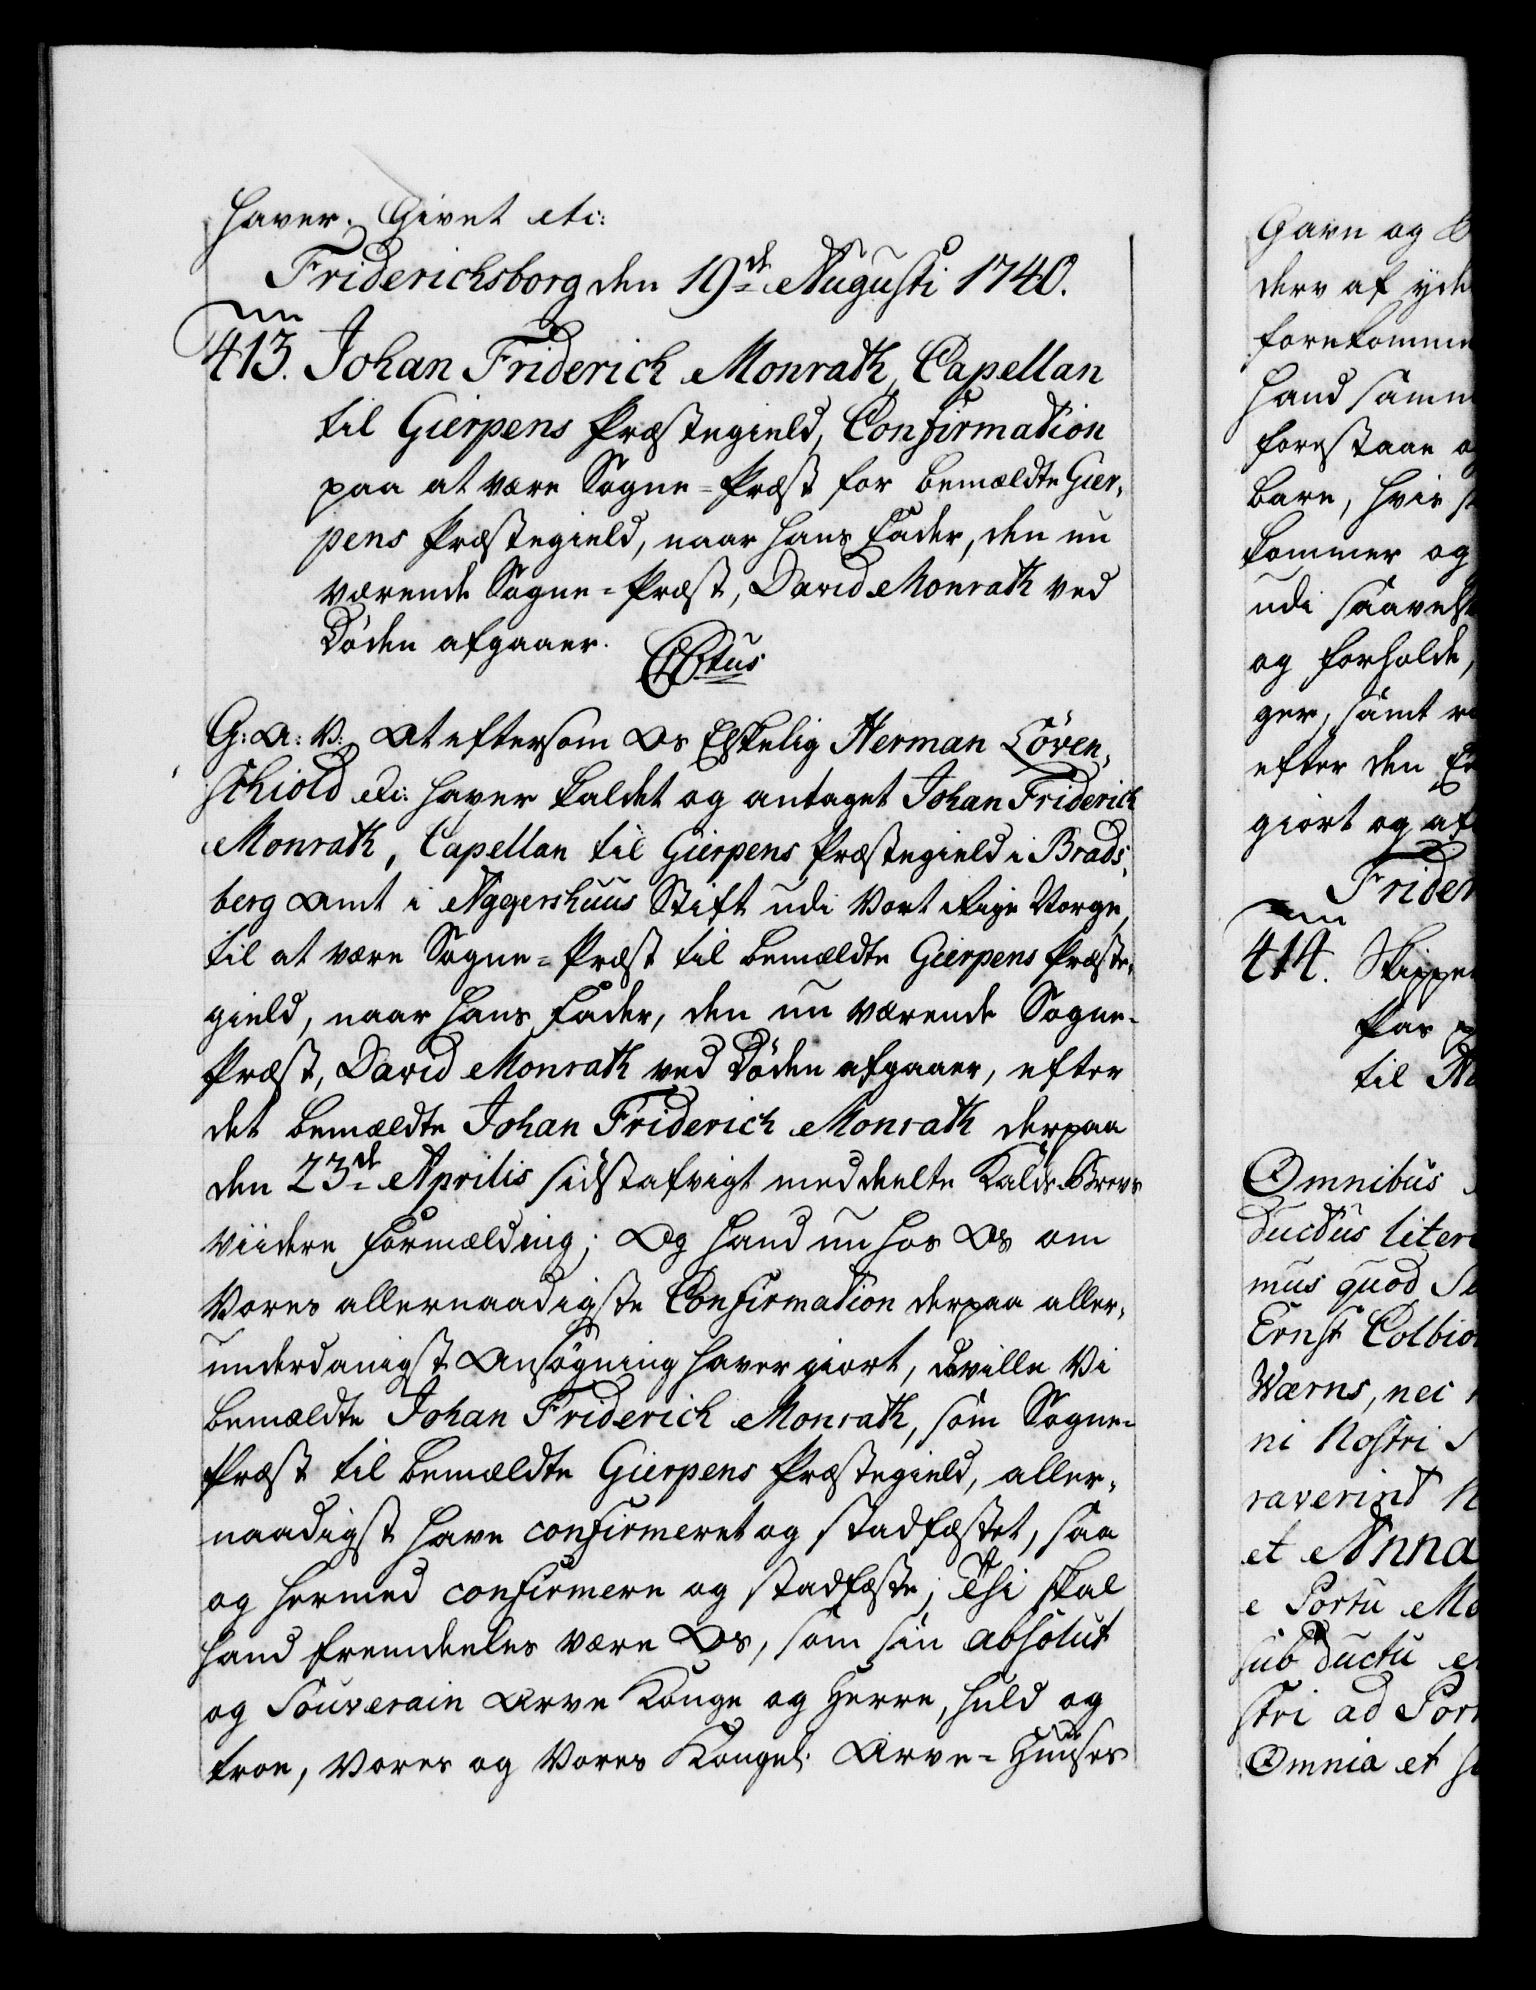 haver. Givet etc:
Friderichsborg den 19de Augusti 1740.
413. Johan Friderich Monrath, Capellan
til Gierpens Præstegield, Confirmation
paa at være Sogne-Præst for bemældte Gier,
pens Præstegield, naar hans Fader, den nu
værende Sogne-Præst, David Monrath ved
Døden afgaaer.
G: A: V: At eftersom Os Elskelig Herman Löven,
schiold etc: haver kaldet og antaget Johan Friderich
Monrath, Capellan til Gierpens Præstegield i Brads,
berg Amt i Aggershuus Stift udi Vort Rige Norge,
til at være Sogne-Præst til bemældte Gierpens Præste,
gield, naar hans Fader, den nu værende Sogne-
Præst, David Monrath ved Döden afgaaer, efter
det bemældte Johan Friderich Monrath derpaa
den 23de Aprilis sidstafvigt meddeelte Kalds-Brevs
viidere formælding; Og hand nu hos Os om
Vores allernaadigste Confirmation derpaa aller,
underdanigst Ansögning haver giort, da ville Vi
bemældte Johan Friderich Monrath, som Sogne-
Præst til bemældte Gierpens Præstegield, aller,
naadigst have confirmeret og stadfæstet, saa
og hermed confirmere og stadfæste; Thi skal
hand fremdeeles være Os, som sin absolut
og Souverain Arve Konge og Herre, huld og
troe, Vores og Vores Kongel: Arve-Huuses
Gavn og
derv af yde
forekomme
hand samm
forestaae
bare, hvis
kommer og
udi saavel
og forholde,
ger, samt
efter den
giort og af
Frider
414. Skipper
Pas
til
Omnibus
ductus liter
mus quod
Ernst Colbio
Wærns, nec
ni Nostri
raverint
et Anna
e Portu
sub ductu
stri ad Por
Omnia et